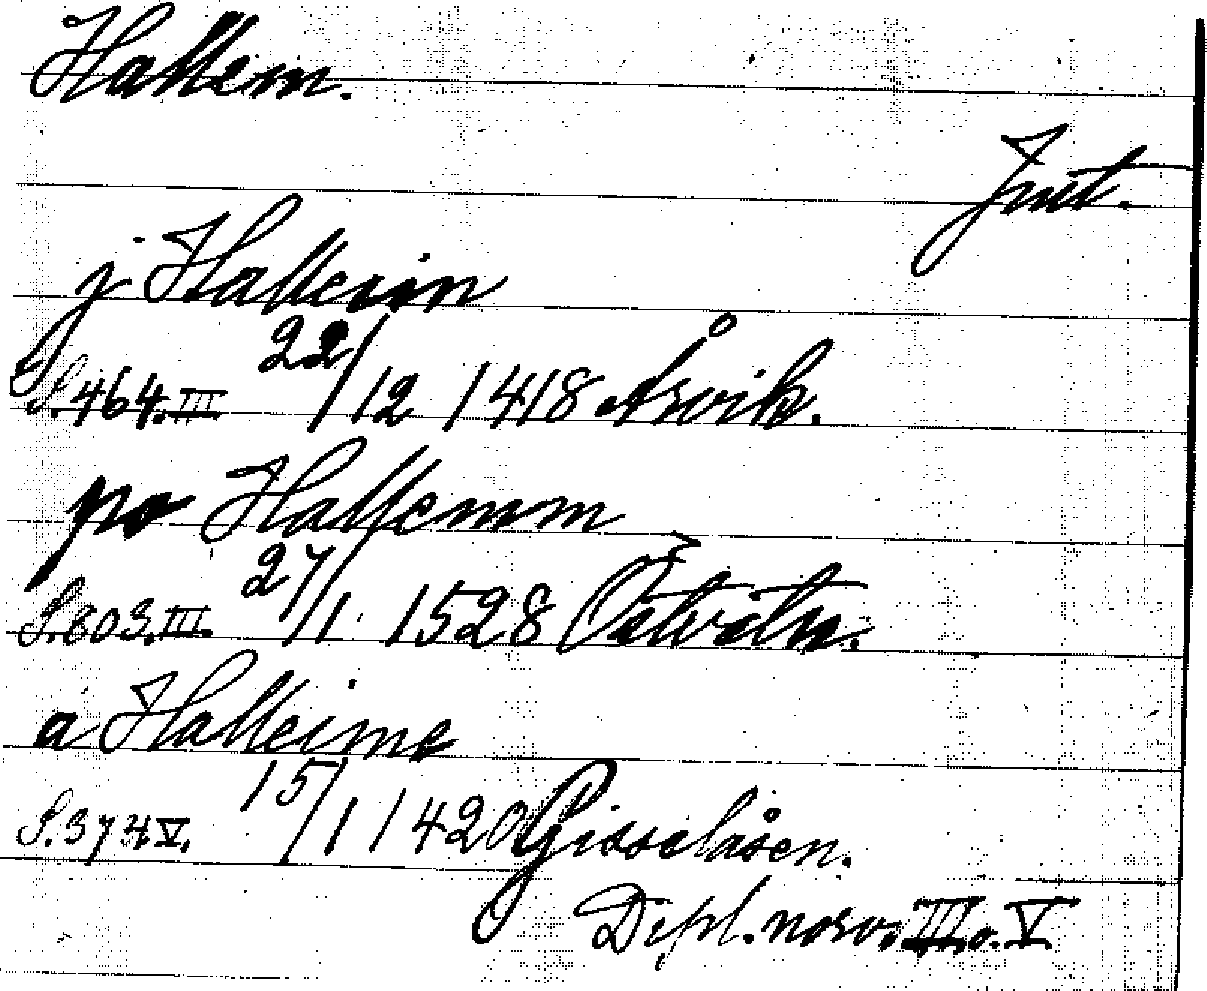 Hallem.
Jmt.
j Hallein
S. 464. III 22/12 1418 Åsvik.
po Hallemm
S. 803. III. 27/1. 1528
a Halleime
S. 374 V. 15/1 1420 Gisselåsen.
Dipl. norv. III o. V